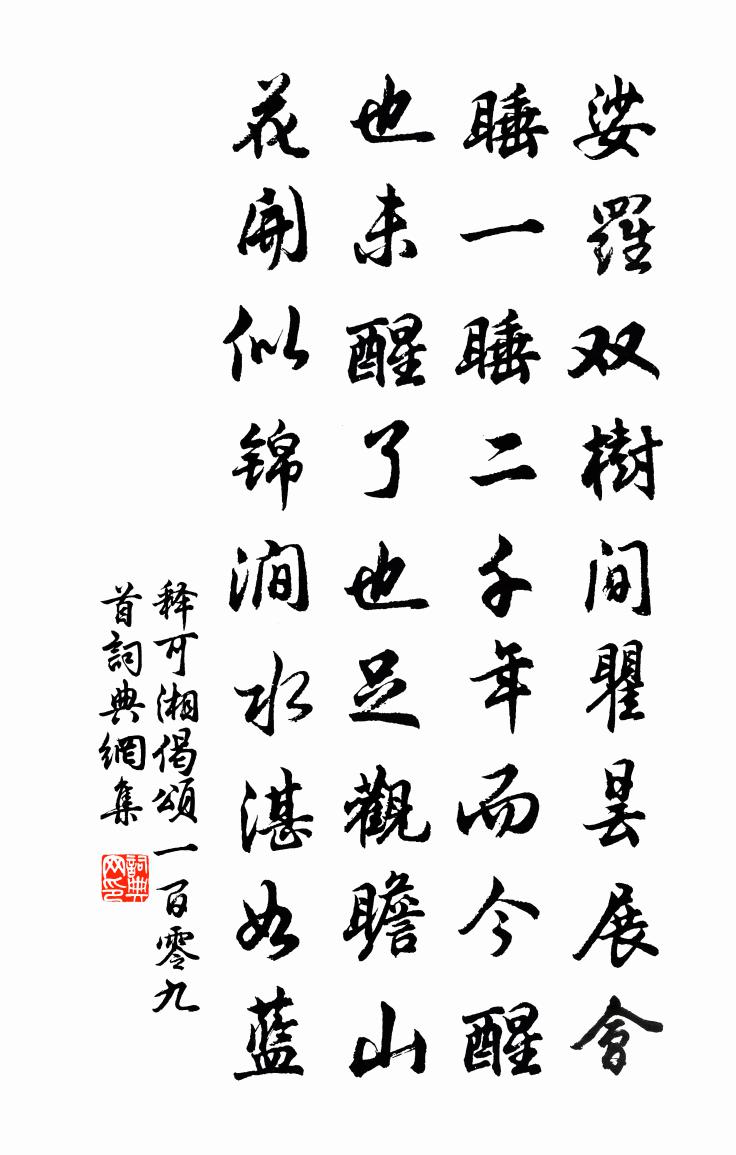 娑羅双樹间瞿昙展會
睡一睡二千年而今醒
也未醒了也足觀瞻山
花開似锦澗水湛如藍
释可湘偈頌一百零九
首詞典網集
詞典网印